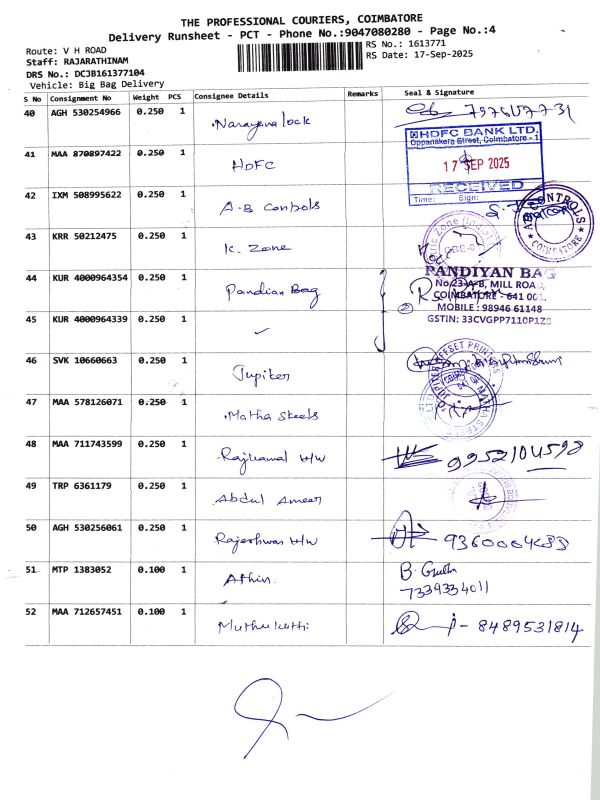 THE PROFESSIONAL COURIERS, COIMBATORE
Delivery Runsheet - PCT - Phone No.:9047080280 - Page No.:4
Route: V H ROAD
RS No.: 1613771
Staff: RAJARATHINAM
RS Date: 17-Sep-2025
DRS No.: DCJB161377104
Vehicle: Big Bag Delivery
S No Consignment No Weight PCS Consignee Details Remarks Seal & Signature
40 AGH 530254966 0.250 1 Narayana lock
HDFC BANK LTD.
Oppanakera Street, Coimbatore - 1
17 SEP 2025
RECEIVED
Time: Sign:
41 MAA 870897422 0.250 1 HDFC
42 IXM 508995622 0.250 1 A-B Controls
AB CONTROLS
COIMBATORE
43 KRR 50212475 0.250 1 K. Zone
44 KUR 4000964354 0.250 1 Pandian Bag
PANDIYAN BAG
No.23-A-B, MILL ROAD,
COIMBATORE - 641 001.
MOBILE : 98946 61148
GSTIN: 33CVGPP7110P1Z8
45 KUR 4000964339 0.250 1 ✓
46 SVK 10660663 0.250 1 Jupiter
47 MAA 578126071 0.250 1 Matha Steels
48 MAA 711743599 0.250 1 Rajkamal H/W 9952104598
49 TRP 6361179 0.250 1 Abdul Ameer
50 AGH 530256061 0.250 1 Rajeshwari H/W
51 MTP 1383052 0.100 1 Athin. B.
7339334011
52 MAA 712657451 0.100 1 Muthukutti 8489531814